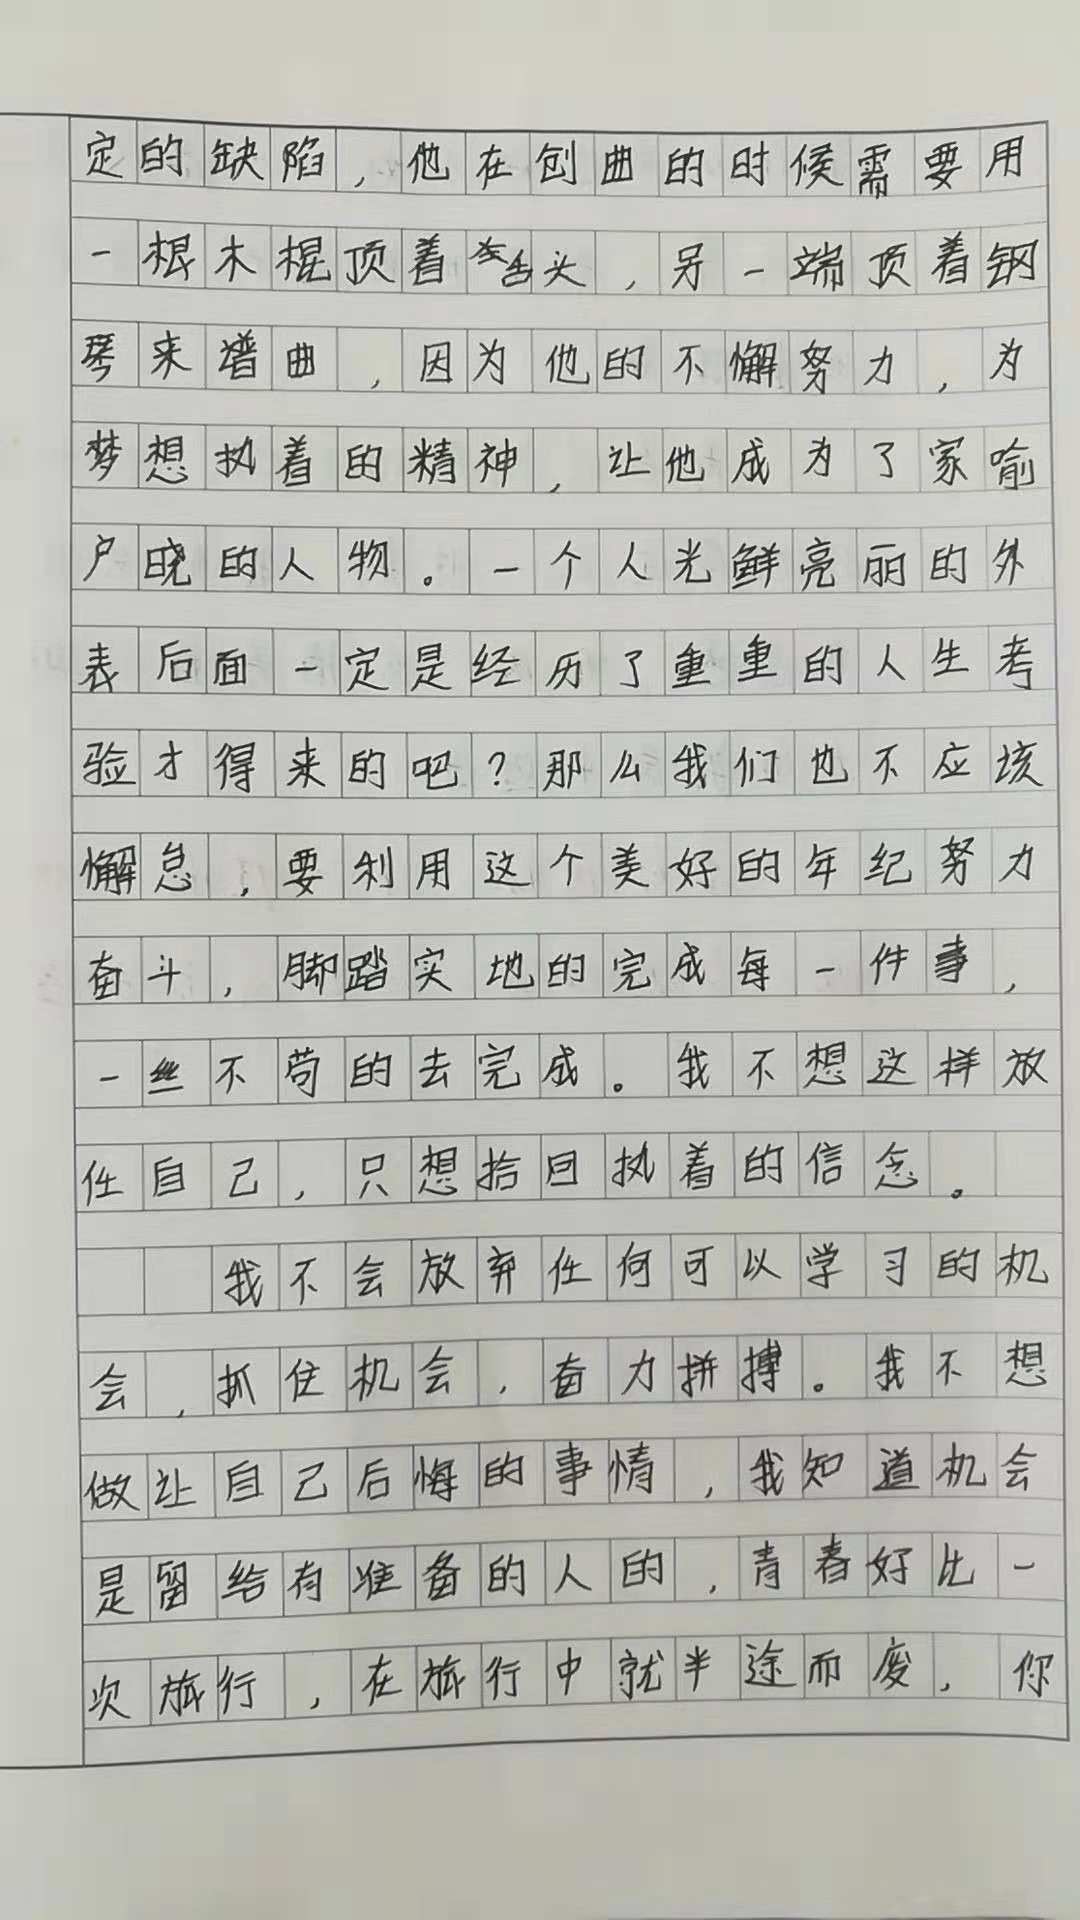 定的缺陷，他在创曲的时候需要用
一根木棍顶着舌头，另一端顶着钢
琴来谱曲，因为他的不懈努力，为
梦想执着的精神，让他成为了家喻
户晓的人物。一个人光鲜亮丽的外
表后面一定是经历了重重的人生考
验才得来的吧？那么我们也不应该
懈怠，要利用这个美好的年纪努力
奋斗，脚踏实地的完成每一件事，
一丝不苟的去完成。我不想这样放
任自己，只想拾回执着的信念。
我不会放弃任何可以学习的机
会，抓住机会，奋力拼搏。我不想
做让自己后悔的事情，我知道机会
是留给有准备的人的，青春好比一
次旅行，在旅行中就半途而废，你